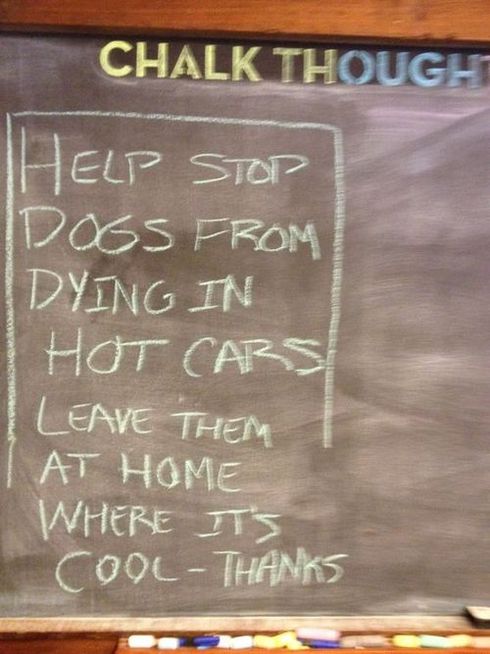 CHALK THOUGHT
HELP STOP
DOGS FROM
DYING IN
HOT CARS
LEAVE THEM
AT HOME
WHERE IT'S
COOL - THANKS